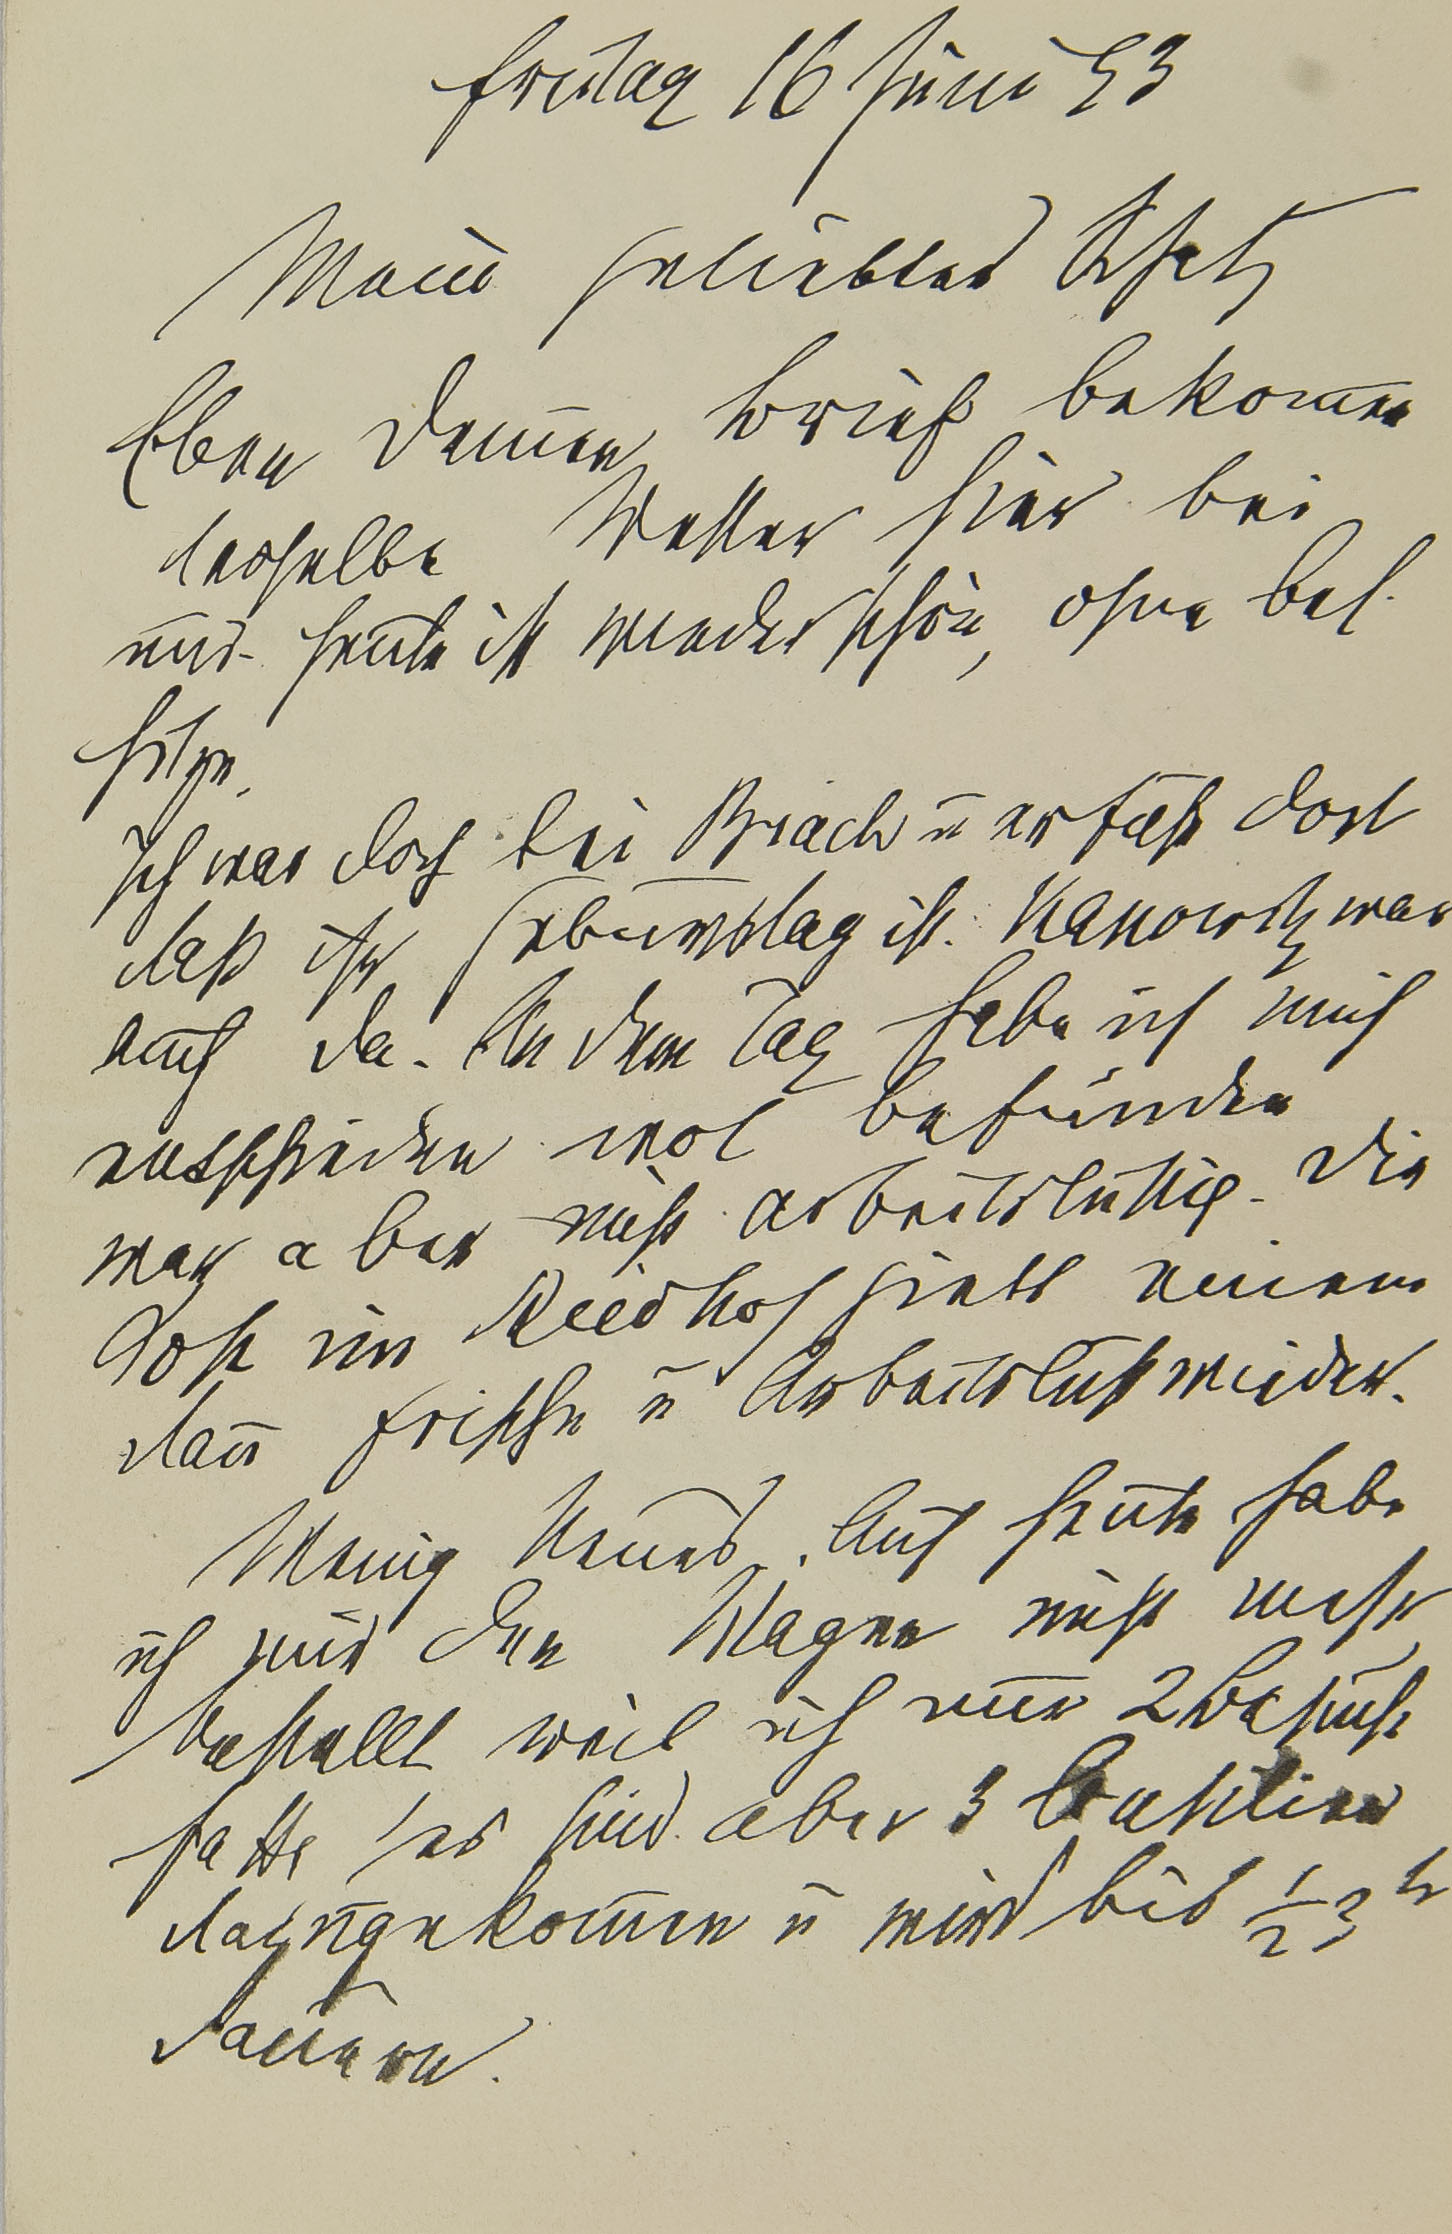 Freitag 16 Juni 93
Mein geliebter Schatz
Eben Deinen Brief bekommen
dasselbe Wetter hier bei
uns. Heute ist wieder schön, ohne bes.
Hitze.
Ich war doch bei Briach u erfuhr dort
daß ihr Geburtstag ist. Kassowitz war
auch da. An dem Tag habe ich mich
entschieden wol befunden
war aber nicht arbeitslustig. Die
Kost im Riedhof giebt einem
dann Frische u Arbeitslust wieder.
Wenig Neues. Auch heute habe
ich mir den Wagen nicht mehr
bestellt weil ich nur 2 Besuche
hatte es sind aber 3
dazugekommen u wird bis ½3 h
dauern.